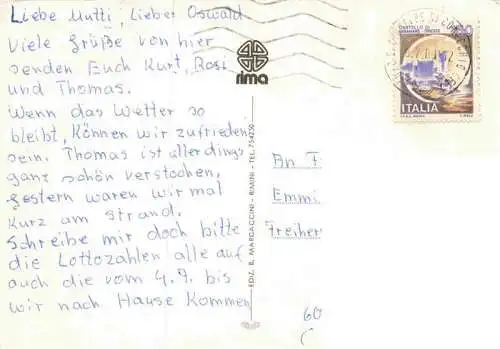 Liebe Mutti, Lieber Oswald.
Viele Grüße von hier
senden Euch Kurt, Rosi
und Thomas.
Wenn das Wetter so
bleibt, Können wir zufrieden
sein. Thomas ist allerdings
ganz schön verstochen,
gestern waren wir mal
Kurz am Strand.
Schreibe mir doch bitte
die Lottozahlen alle auf
auch die vom 4.9. bis
wir nach Hause Kommen
rima
EDIZ. B. MARGACCINI - RIMINI - TEL. 734270
CASTELLO DI
MIRAMARE - TRIESTE
ITALIA
An F
Emmi
Freiher
60